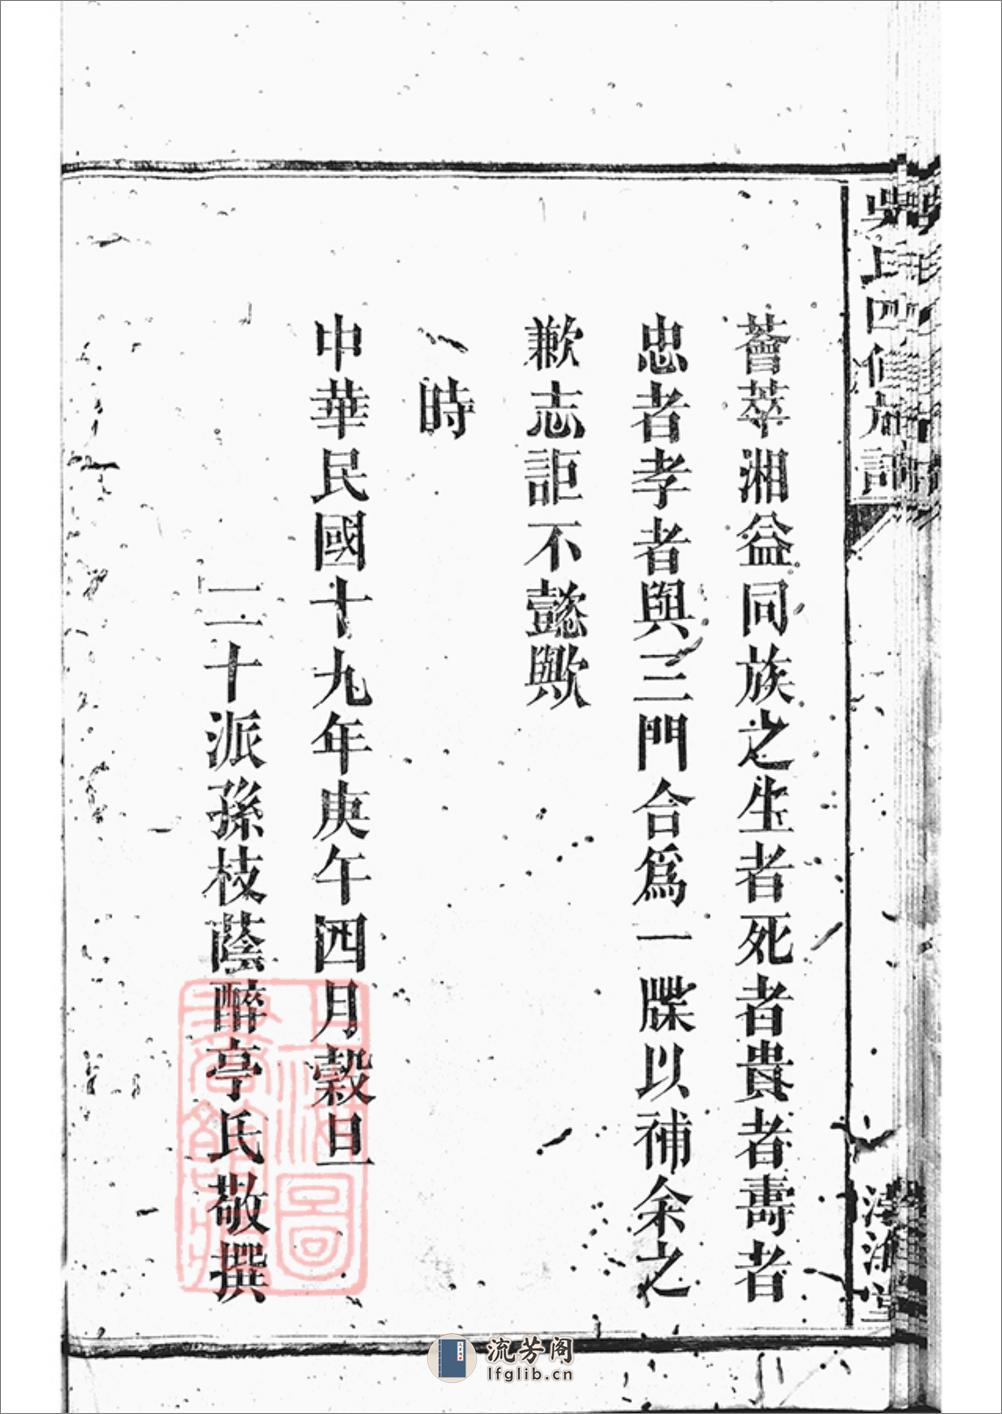 吳氏四修族譜
薈萃湘益同族之生者死者貴者壽者
忠者孝者與三門合爲一牒以補余之
歉志詎不懿歟
時
中華民國十九年庚午四月穀旦
二十派孫枝蔭醉亭氏敬撰
上海圖書館藏
流芳阁
lfglib.cn